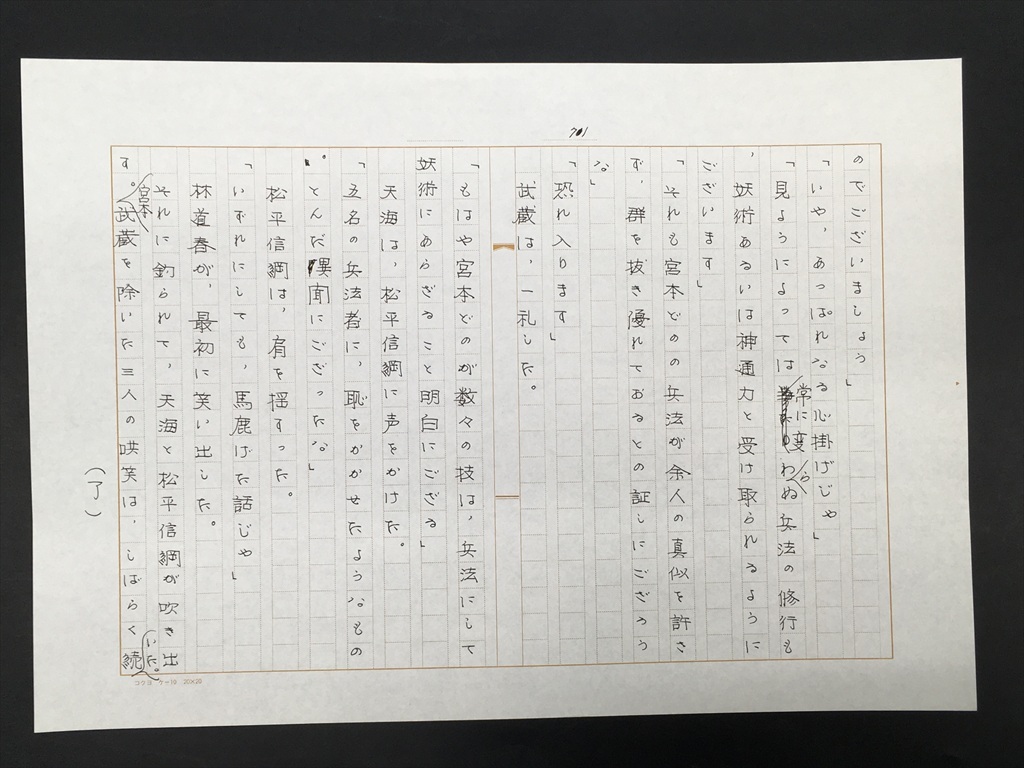 701
のでございましょう」
「いや、あっぱれなる心掛けじゃ」
「見ようによっては常に変わらぬ兵法の修行も
、妖術あるいは神通力と受け取られるように
ございます」
「それも宮本どのの兵法が余人の真似を許さ
ず、群を抜き優れておるとの証しにござろう
な」
「恐れ入ります」
武蔵は、一礼した。
「もはや宮本どのが数々の技は、兵法にして
妖術にあらざること明白にござる」
天海は、松平信綱に声をかけた。
「五名の兵法者に、恥をかかせたようなもの
。とんだ異聞にござったな」
松平信綱は、肩を揺すった。
「いずれにしても、馬鹿げた話じゃ」
林道春が、最初に笑い出した。
それに釣られて、天海と松平信綱が吹き出
す。宮本武蔵を除いた三人の哄笑は、しばらく続いた。
(了)
コクヨ ケー10 20×20